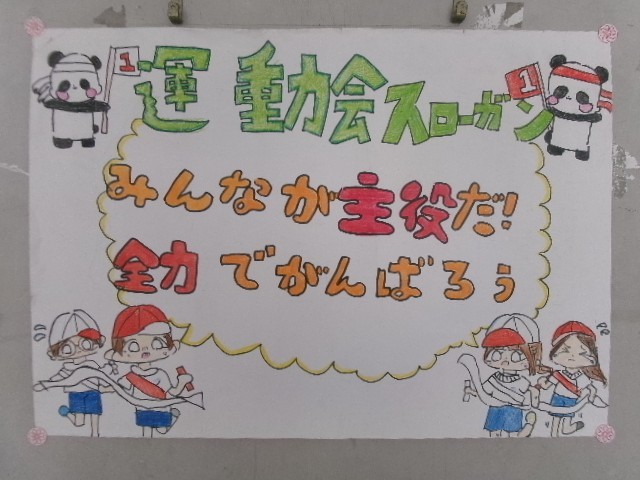 運動会スローガン
1
1
みんなが主役だ!
全力でがんばろう